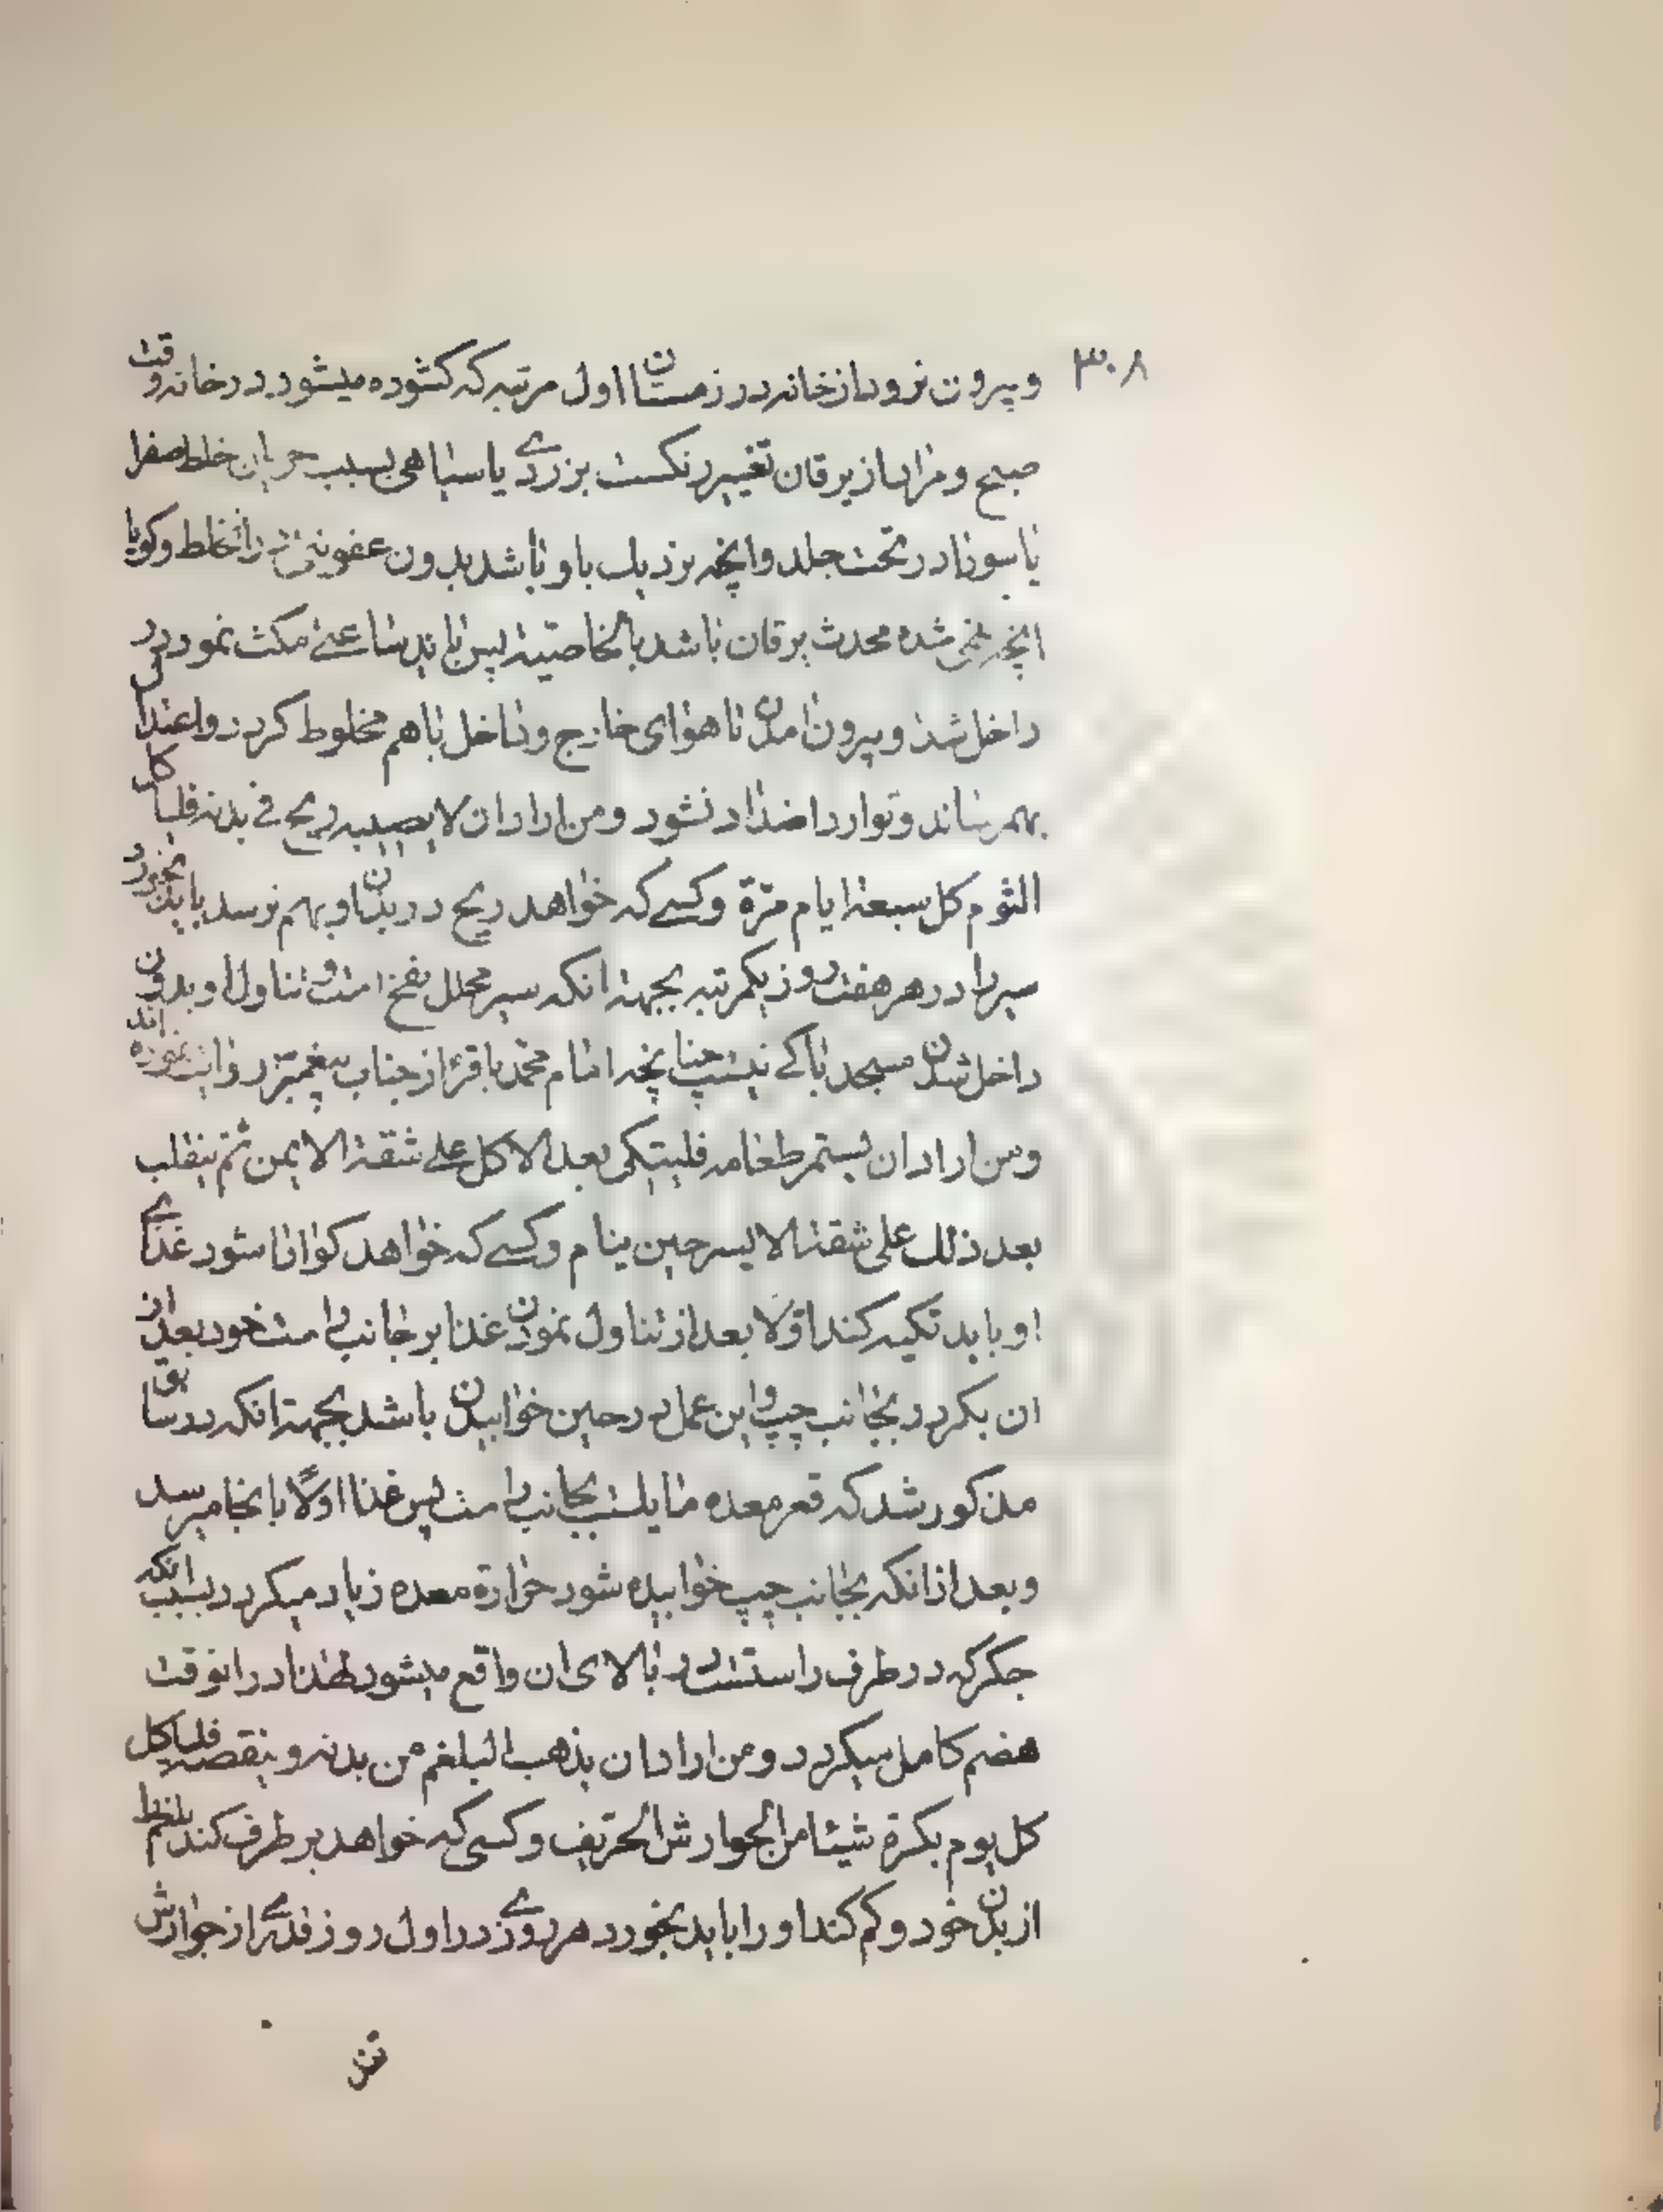 ۳۰۸
و بیرون نرود از خانه در زمستان اول مرتبه که کشوده میشود در خانه وقت
صبح و مراد از یرقان تغییر رنکست بزردی یا سیاهی بسبب جریان خلط صفرا
یا سودا در تحت جلد و انچه نزدیک باو باشد بدون عفونتی در انخلط و کویا
انچه نهی شده محدث یرقان باشد بالخاصیة پس باید ساعتی مکث نمود در
داخل شدن و بیرون امدن تا هوای خارج و داخل با هم مخلوط کردد و اعتدال
بهم رساند و توارد اضداد نشود و من اراد ان لا یصیبه ریح فی بدنه فلیاکل
الثوم کل سبعة ایام مرّة و کسی که خواهد ریح در بدن او بهم نرسد باید بخورد
سیر را در هر هفت روز یکمرتبه بجهة انکه سیر محلل نفخ است و تناول او بدون
داخل شدن مسجد باکی نیست چنانچه امام محمد باقرؑ از جناب پیغمبرؐ روایت نموده اند
و من اراد ان یستمر طعامه فلیتکی بعد الاکل علی شقة الایمن ثم ینقلب
بعد ذلک علی شقة الایسر حین ینام و کسی که خواهد کوارا شود غذای
او باید تکیه کند اوّلا بعد از تناول نمودن غذا بر جانب راست خود بعد از
ان بکردد بجانب چپ و این عمل در حین خوابیدن باشد بجهة انکه در سابق
مذکور شد که قعر معده مایلست بجانب راست پس غذا اوّلاً بانجا میرسد
و بعد از انکه بجانب چپ خوابیده شود حرارة معده زیاد میکردد بسبب انکه
جکر که در طرف راستست بر بالای ان واقع میشود لهذا در انوقت
هضم کامل میکردد و من اراد ان یذهب البلغم من بدنه و ینقصه فلیاکل
کل یوم بکرة شیئا من الجوارش الحریف و کسی که خواهد بر طرف کند بلغم را
از بدن خود و کم کند او را باید بخورد هر روزی در اول روز قدری از جوارش